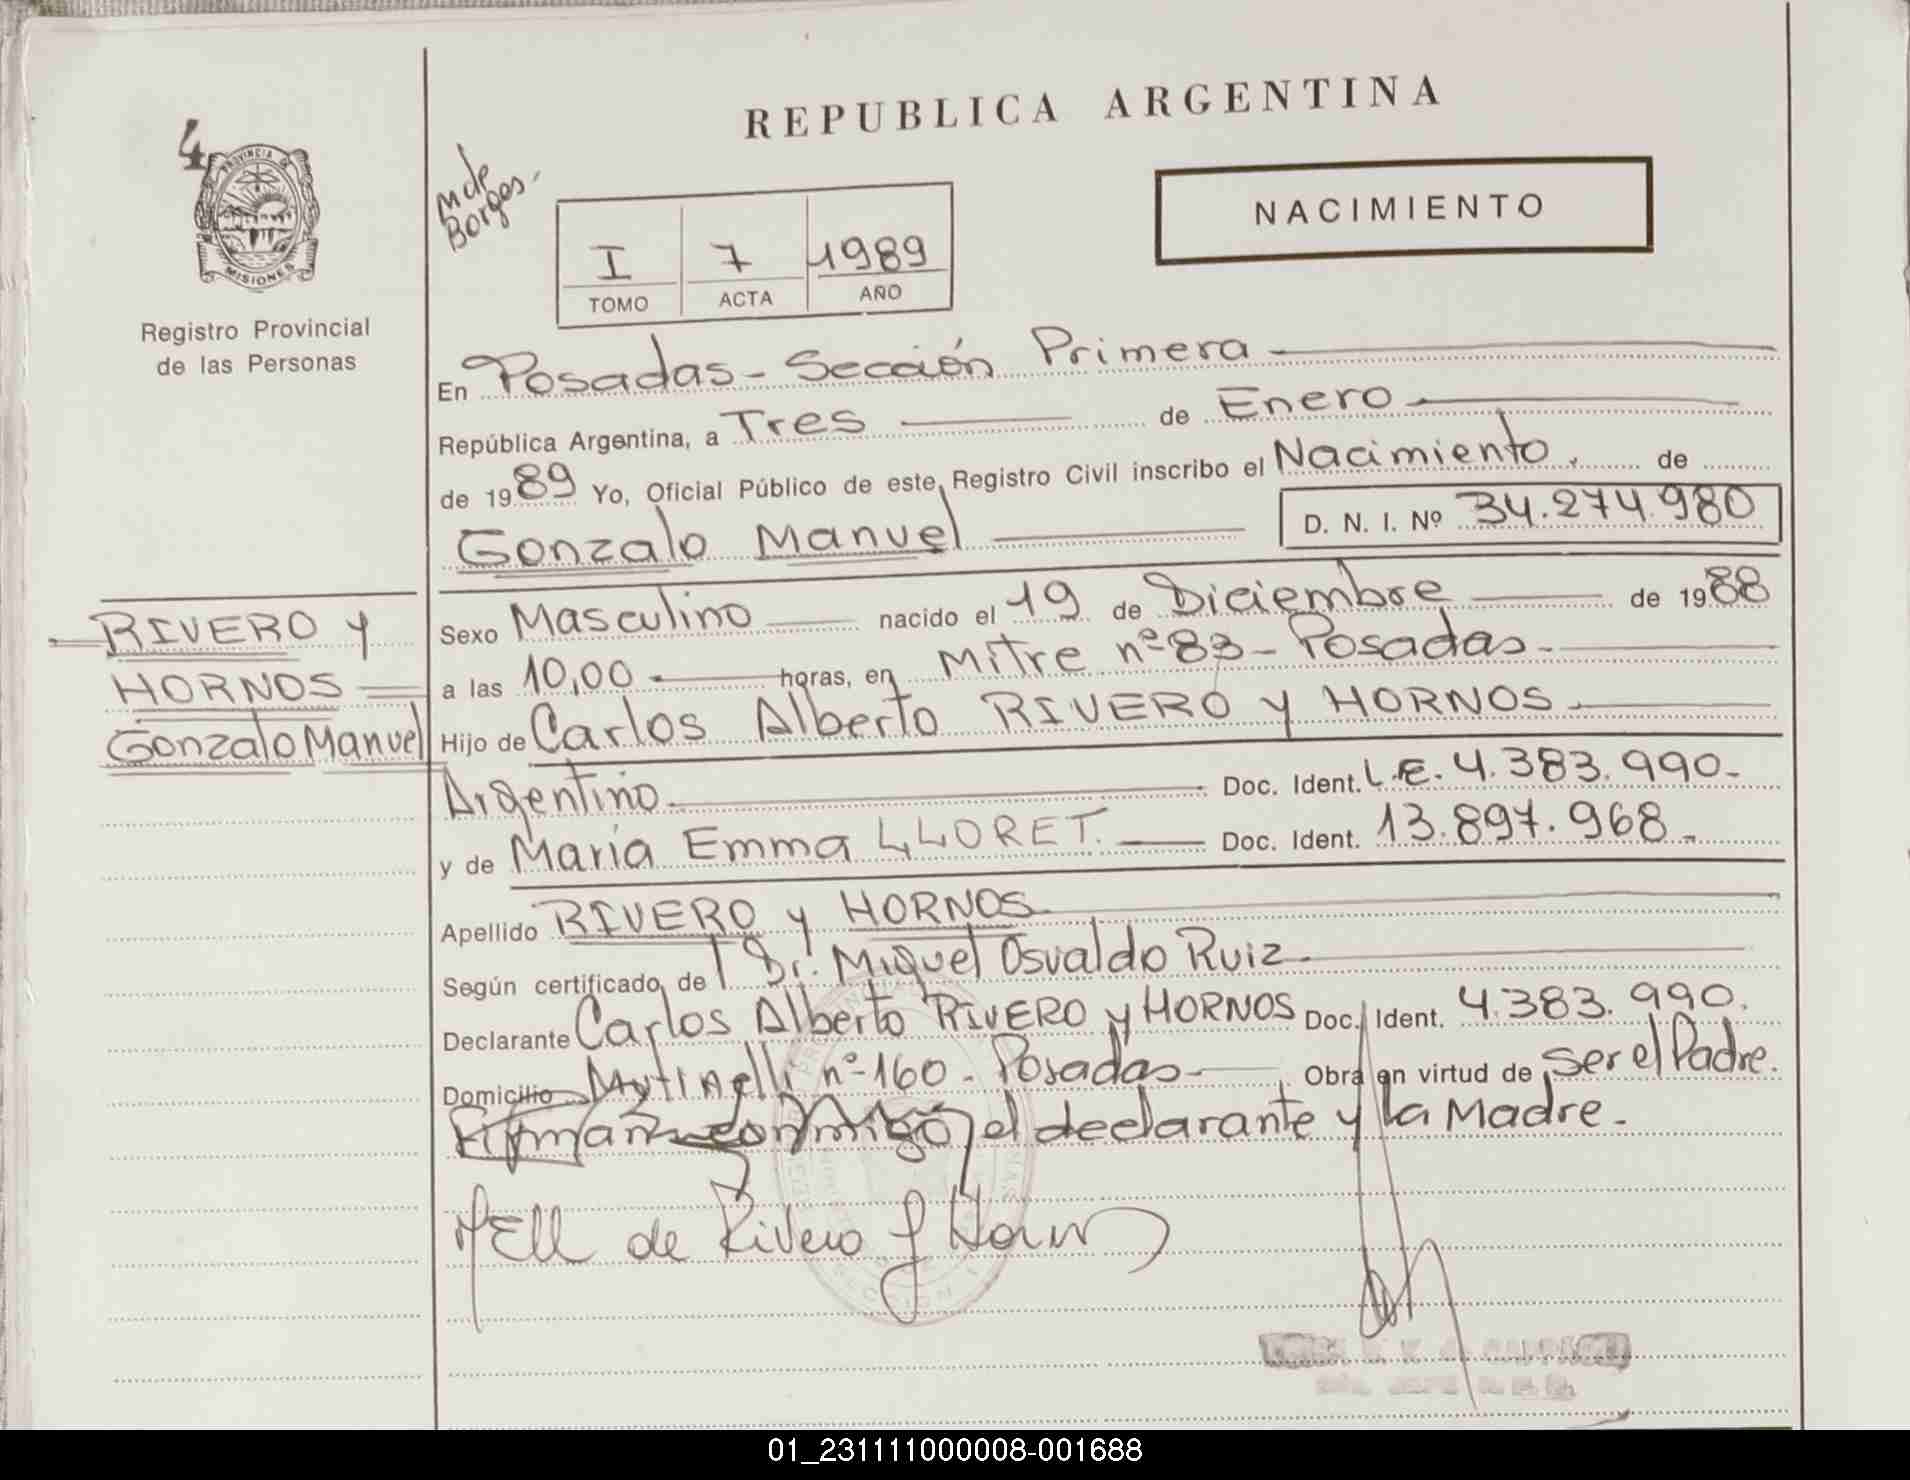 REPUBLICA ARGENTINA
4
PROVINCIA DE
MISIONES
Registro Provincial
de las Personas
M de
Borges.
NACIMIENTO
I 7 1989
TOMO ACTA AÑO
En Posadas - Sección Primera
República Argentina, a Tres de Enero
de 1989 Yo, Oficial Público de este Registro Civil inscribo el Nacimiento. de
Gonzalo Manuel D. N. I. Nº 34.274.980
RIVERO y
HORNOS
Gonzalo Manuel
Sexo Masculino nacido el 19 de Diciembre de 1988
a las 10,00 horas, en Mitre nº 83 - Posadas -
Hijo de Carlos Alberto RIVERO y HORNOS
Argentino Doc. Ident. L.E. 4.383.990-
y de María Emma LLORET. Doc. Ident. 13.897.968.-
Apellido RIVERO y HORNOS
Según certificado de l Dr. Miguel Osvaldo Ruiz.
Declarante Carlos Alberto RIVERO y HORNOS Doc. Ident. 4.383.990.
Domicilio Mutinelli nº 160 - Posadas - Obra en virtud de ser el Padre.
Firman conmigo el declarante y la Madre.-
MELL de Rivero y Hornos
SECCION
01_231111000008-001688